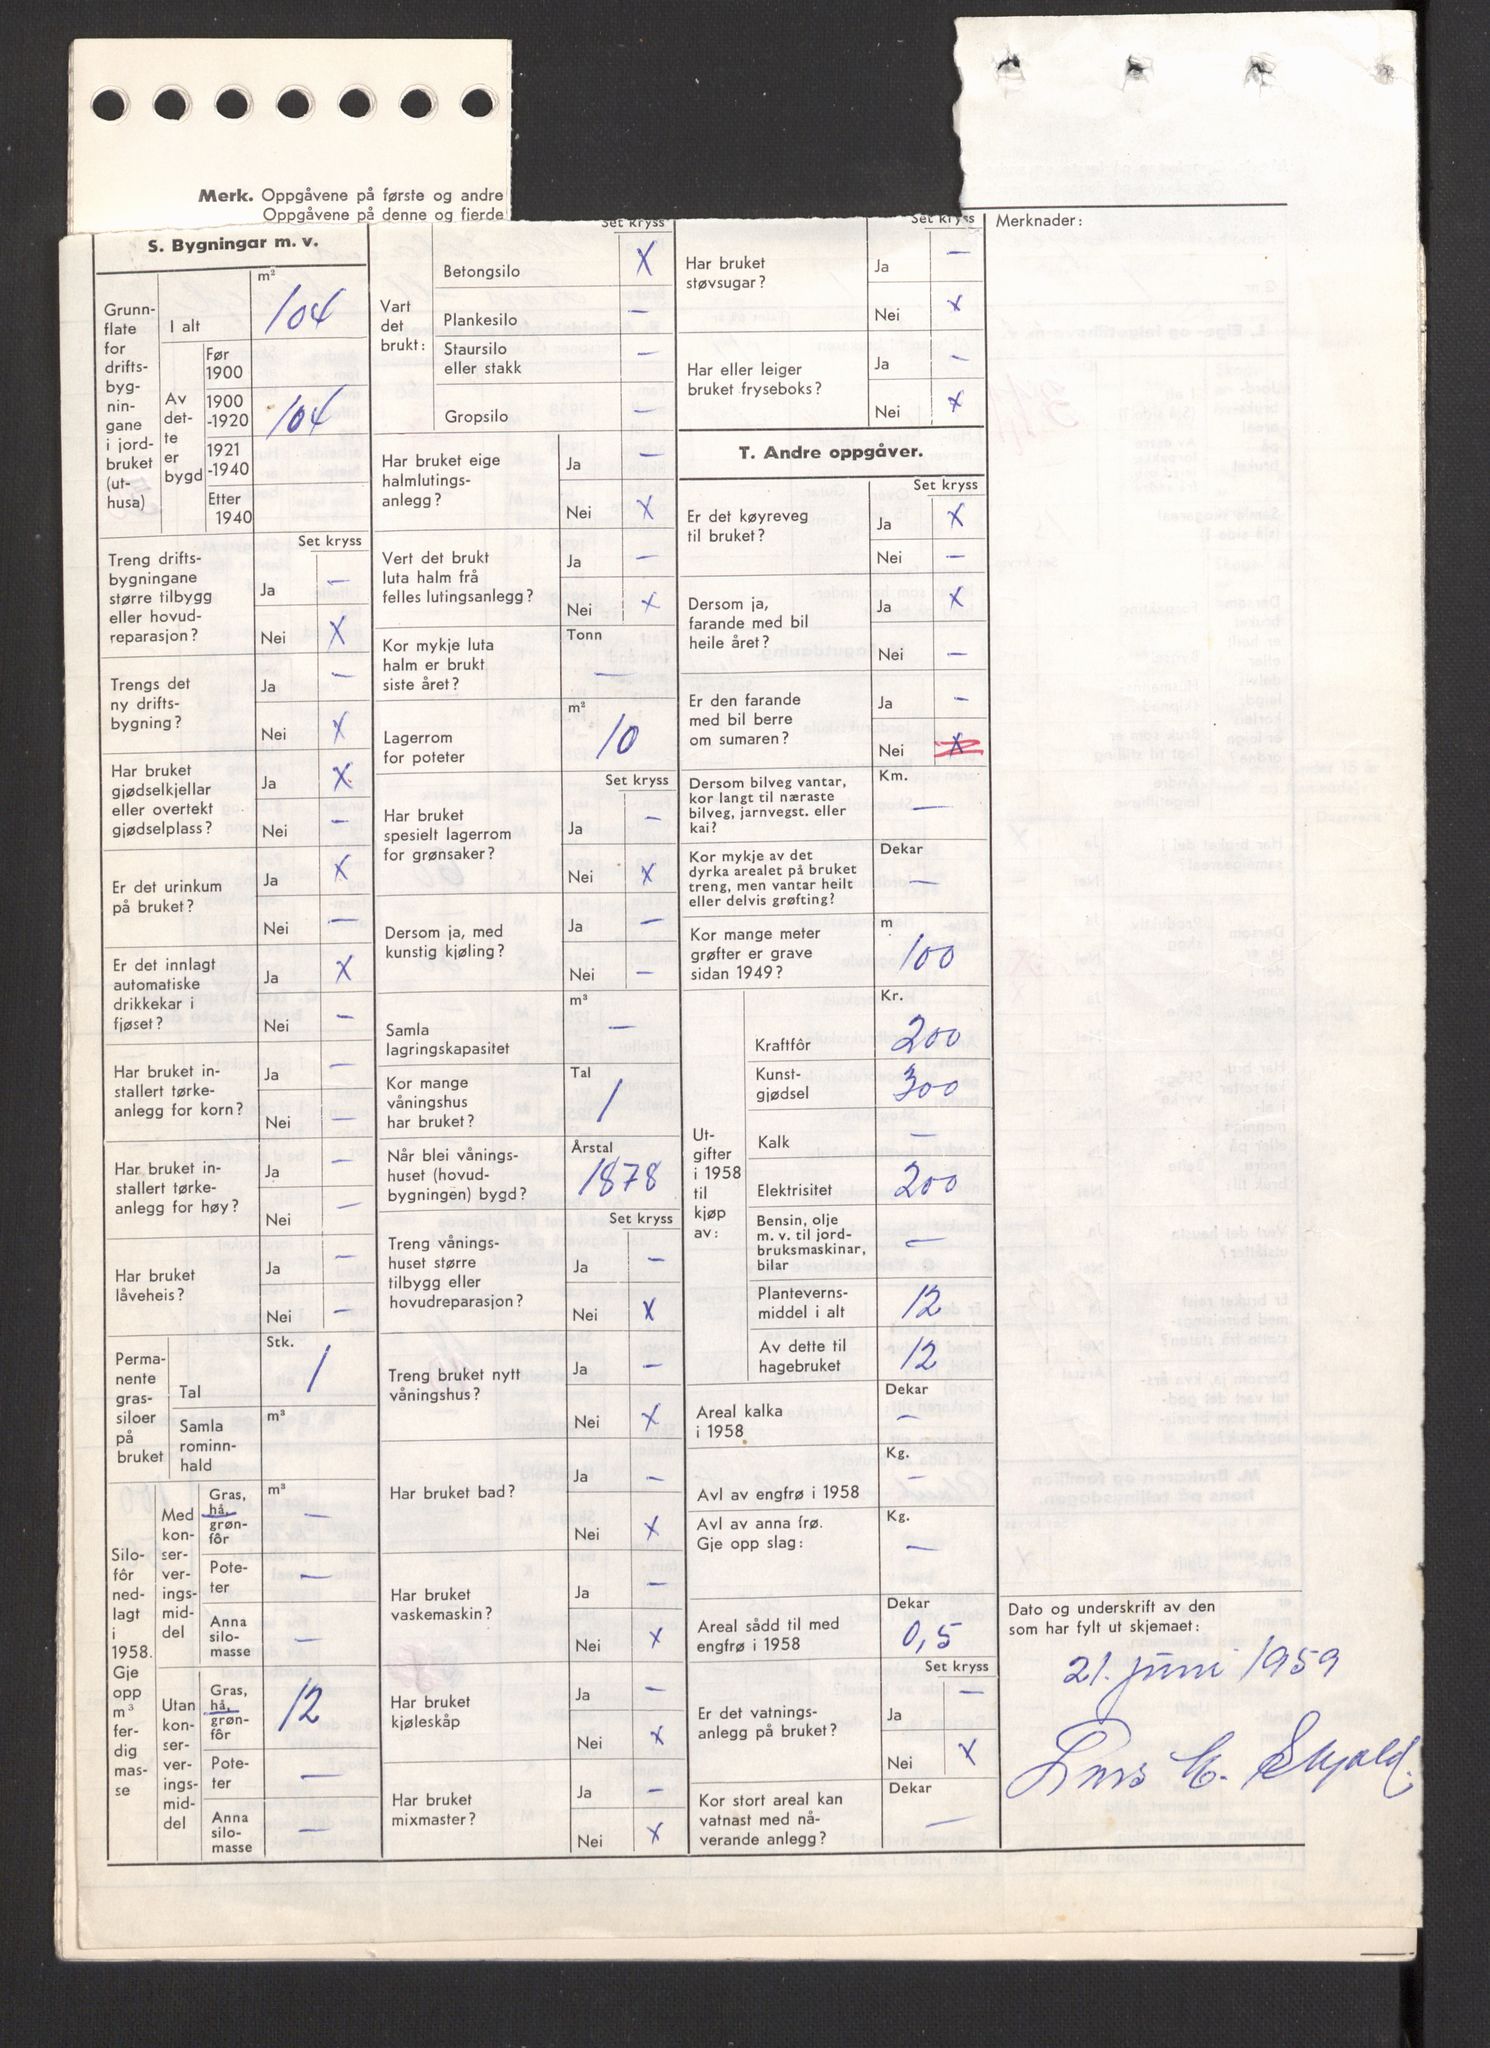 Merk. Oppgåvene på første og andre
Oppgåvene på denne og fjerde
S. Bygningar m. v.
m²
Grunn-
flate
for
drifts-
byg-
nin-
gane
i jord-
bruket
(ut-
husa)
I alt
104
Av
det-
te
er
bygd
Før
1900
1900
-1920
104
1921
-1940
Etter
1940
Set kryss
Treng drifts-
bygningane
større tilbygg
eller hovud-
reparasjon?
Ja —
Nei X
Trengs det
ny drifts-
bygning?
Ja —
Nei X
Har bruket
gjødselkjellar
eller overtekt
gjødselplass?
Ja X
Nei —
Er det urinkum
på bruket?
Ja X
Nei —
Er det innlagt
automatiske
drikkekar i
fjøset?
Ja X
Nei —
Har bruket in-
stallert tørke-
anlegg for korn?
Ja —
Nei —
Har bruket in-
stallert tørke-
anlegg for høy?
Ja —
Nei —
Har bruket
låveheis?
Ja —
Nei —
Perma-
nente
gras-
siloer
på
bruket
Stk.
Tal 1
m³
Samla
rominn-
hald
Silo-
fôr
ned-
lagt
i
1958.
Gje
opp
m³
fer-
dig
mas-
se
Med
kon-
ser-
ver-
ings-
mid-
del
m³
Gras,
hå,
grøn-
fôr
—
Pote-
ter
—
Anna
silo-
masse
—
Utan
kon-
ser-
ver-
ings-
mid-
del
Gras,
hå,
grøn-
fôr
12
Pote-
ter
—
Anna
silo-
masse
—
Set kryss
Vart
det
brukt:
Betongsilo X
Plankesilo —
Staursilo
eller stakk —
Gropsilo —
Har bruket eige
halmlutings-
anlegg?
Ja —
Nei X
Vert det brukt
luta halm frå
felles lutingsanlegg?
Ja —
Nei X
Tonn
Kor mykje luta
halm er brukt
siste året?
—
m²
Lagerrom
for poteter
10
Set kryss
Har bruket
spesielt lagerrom
for grønsaker?
Ja —
Nei X
Dersom ja, med
kunstig kjøling?
Ja —
Nei —
m³
Samla
lagringskapasitet
—
Tal
Kor mange
våningshus
har bruket?
1
Årstal
Når blei vånings-
huset (hovud-
bygningen) bygd?
1878
Set kryss
Treng vånings-
huset større
tilbygg eller
hovudreparasjon?
Ja —
Nei X
Treng bruket nytt
våningshus?
Ja —
Nei X
Har bruket bad?
Ja —
Nei X
Har bruket
vaskemaskin?
Ja —
Nei X
Har bruket
kjøleskåp
Ja —
Nei X
Har bruket
mixmaster?
Ja —
Nei X
Set kryss
Har bruket
støvsugar?
Ja —
Nei X
Har eller leiger
bruket fryseboks?
Ja —
Nei X
T. Andre oppgåver.
Set kryss
Er det køyreveg
til bruket?
Ja X
Nei —
Dersom ja,
farande med bil
heile året?
Ja X
Nei —
Er den farande
med bil berre
om sumaren?
Ja —
Nei X
Km.
Dersom bilveg vantar,
kor langt til næraste
bilveg, jarnvegst. eller
kai?
—
Dekar
Kor mykje av det
dyrka arealet på bruket
treng, men vantar heilt
eller delvis grøfting?
—
m
Kor mange meter
grøfter er grave
sidan 1949?
100
Ut-
gifter
i 1958
til
kjøp
av:
Kr.
Kraftfôr 200
Kunst-
gjødsel 300
Kalk —
Elektrisitet 200
Bensin, olje
m. v. til jord-
bruksmaskinar,
bilar
—
Planteverns-
middel i alt 12
Av dette til
hagebruket 12
Dekar
Areal kalka
i 1958
—
Kg.
Avl av engfrø i 1958 —
Kg.
Avl av anna frø.
Gje opp slag:
—
Dekar
Areal sådd til med
engfrø i 1958
0,5
Set kryss
Er det vatnings-
anlegg på bruket?
Ja —
Nei X
Dekar
Kor stort areal kan
vatnast med nå-
verande anlegg?
—
Merknader:
Dato og underskrift av den
som har fylt ut skjemaet:
21. juni 1959
Lars M. Skjold.